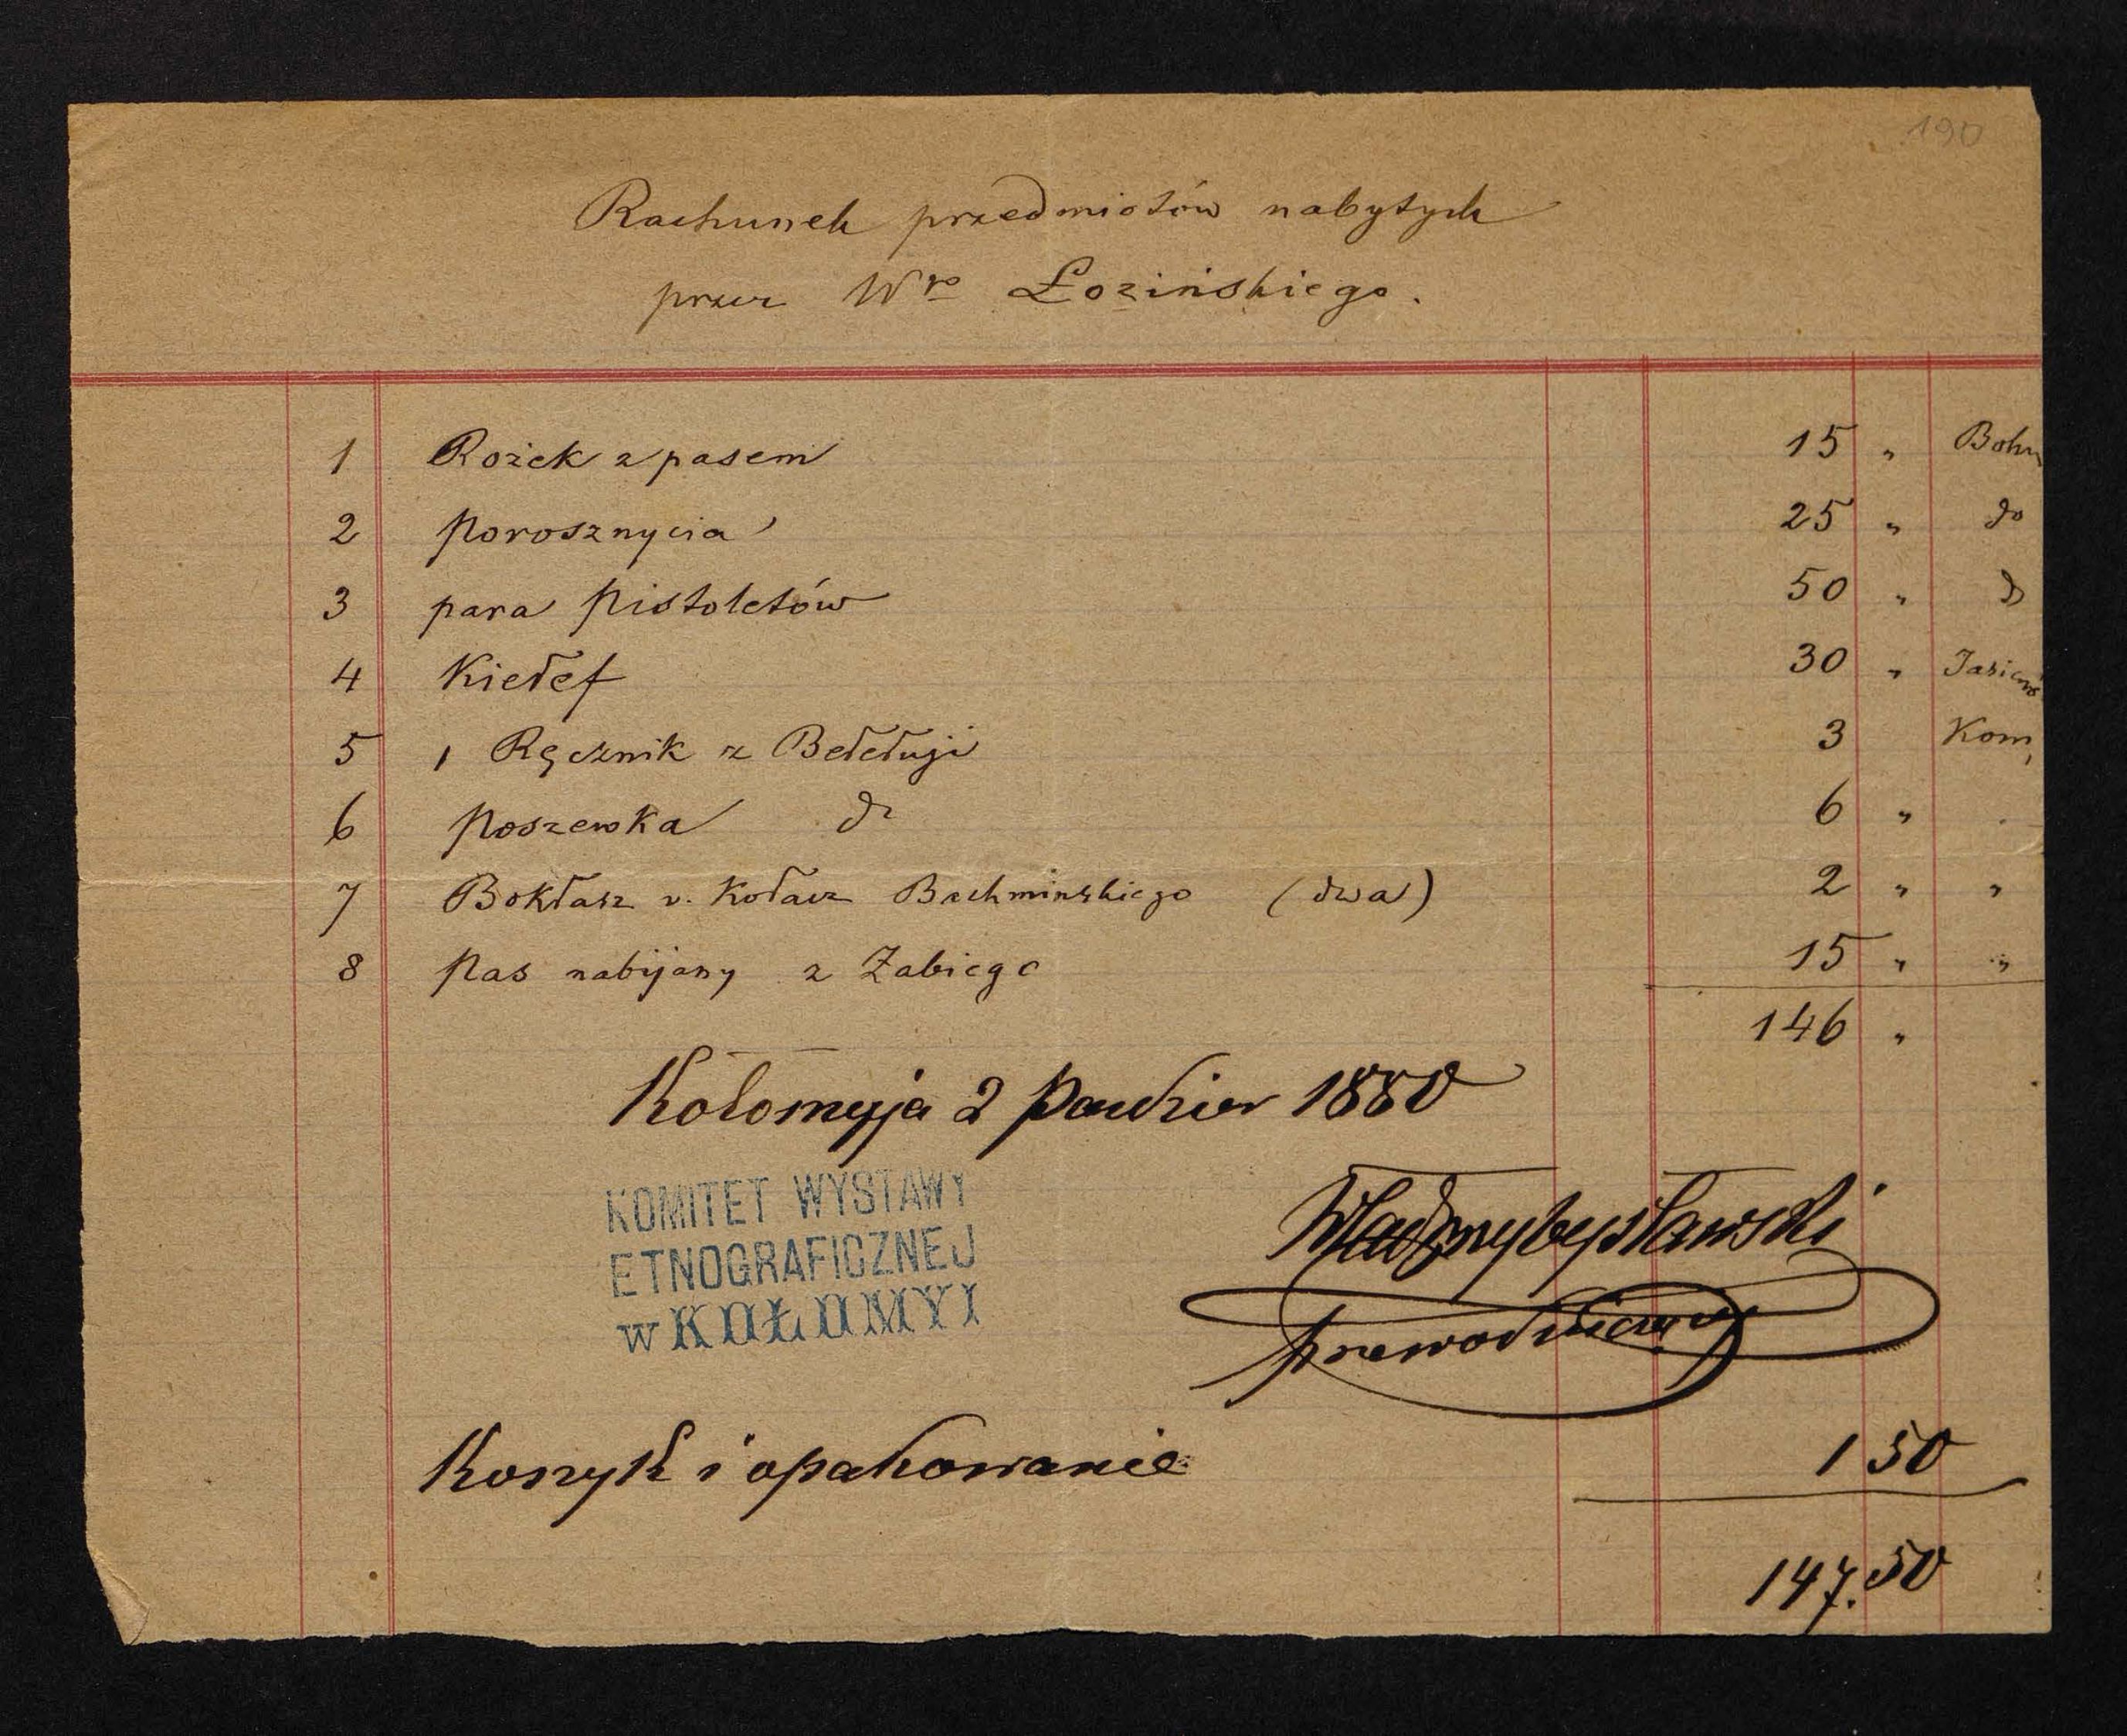 190
Rachunek przedmiotów nabytych
przez Wgo Łozińskiego.
1 Rożek z pasem 15 „ Bohn
2 Porosznycia 25 „ do
3 para Pistoletów 50 „ do
4 Kiełef 30 „ Jasienow
5 1 Ręcznik z Bełełuji 3 Kom,
6 Poszewka do 6 „ „
7 Bokłasz v. Kołacz Bachminskiego (dwa) 2 „ „
8 Pas nabijany z Żabiego 15 „ „
146 „
Kołomyja 2 Paździer 1880
KOMITET WYSTAWY
ETNOGRAFICZNEJ
w KOŁOMYI
Wład Przybysławski
przewodniczący
Koszyk i opakowanie 1 50
147.50